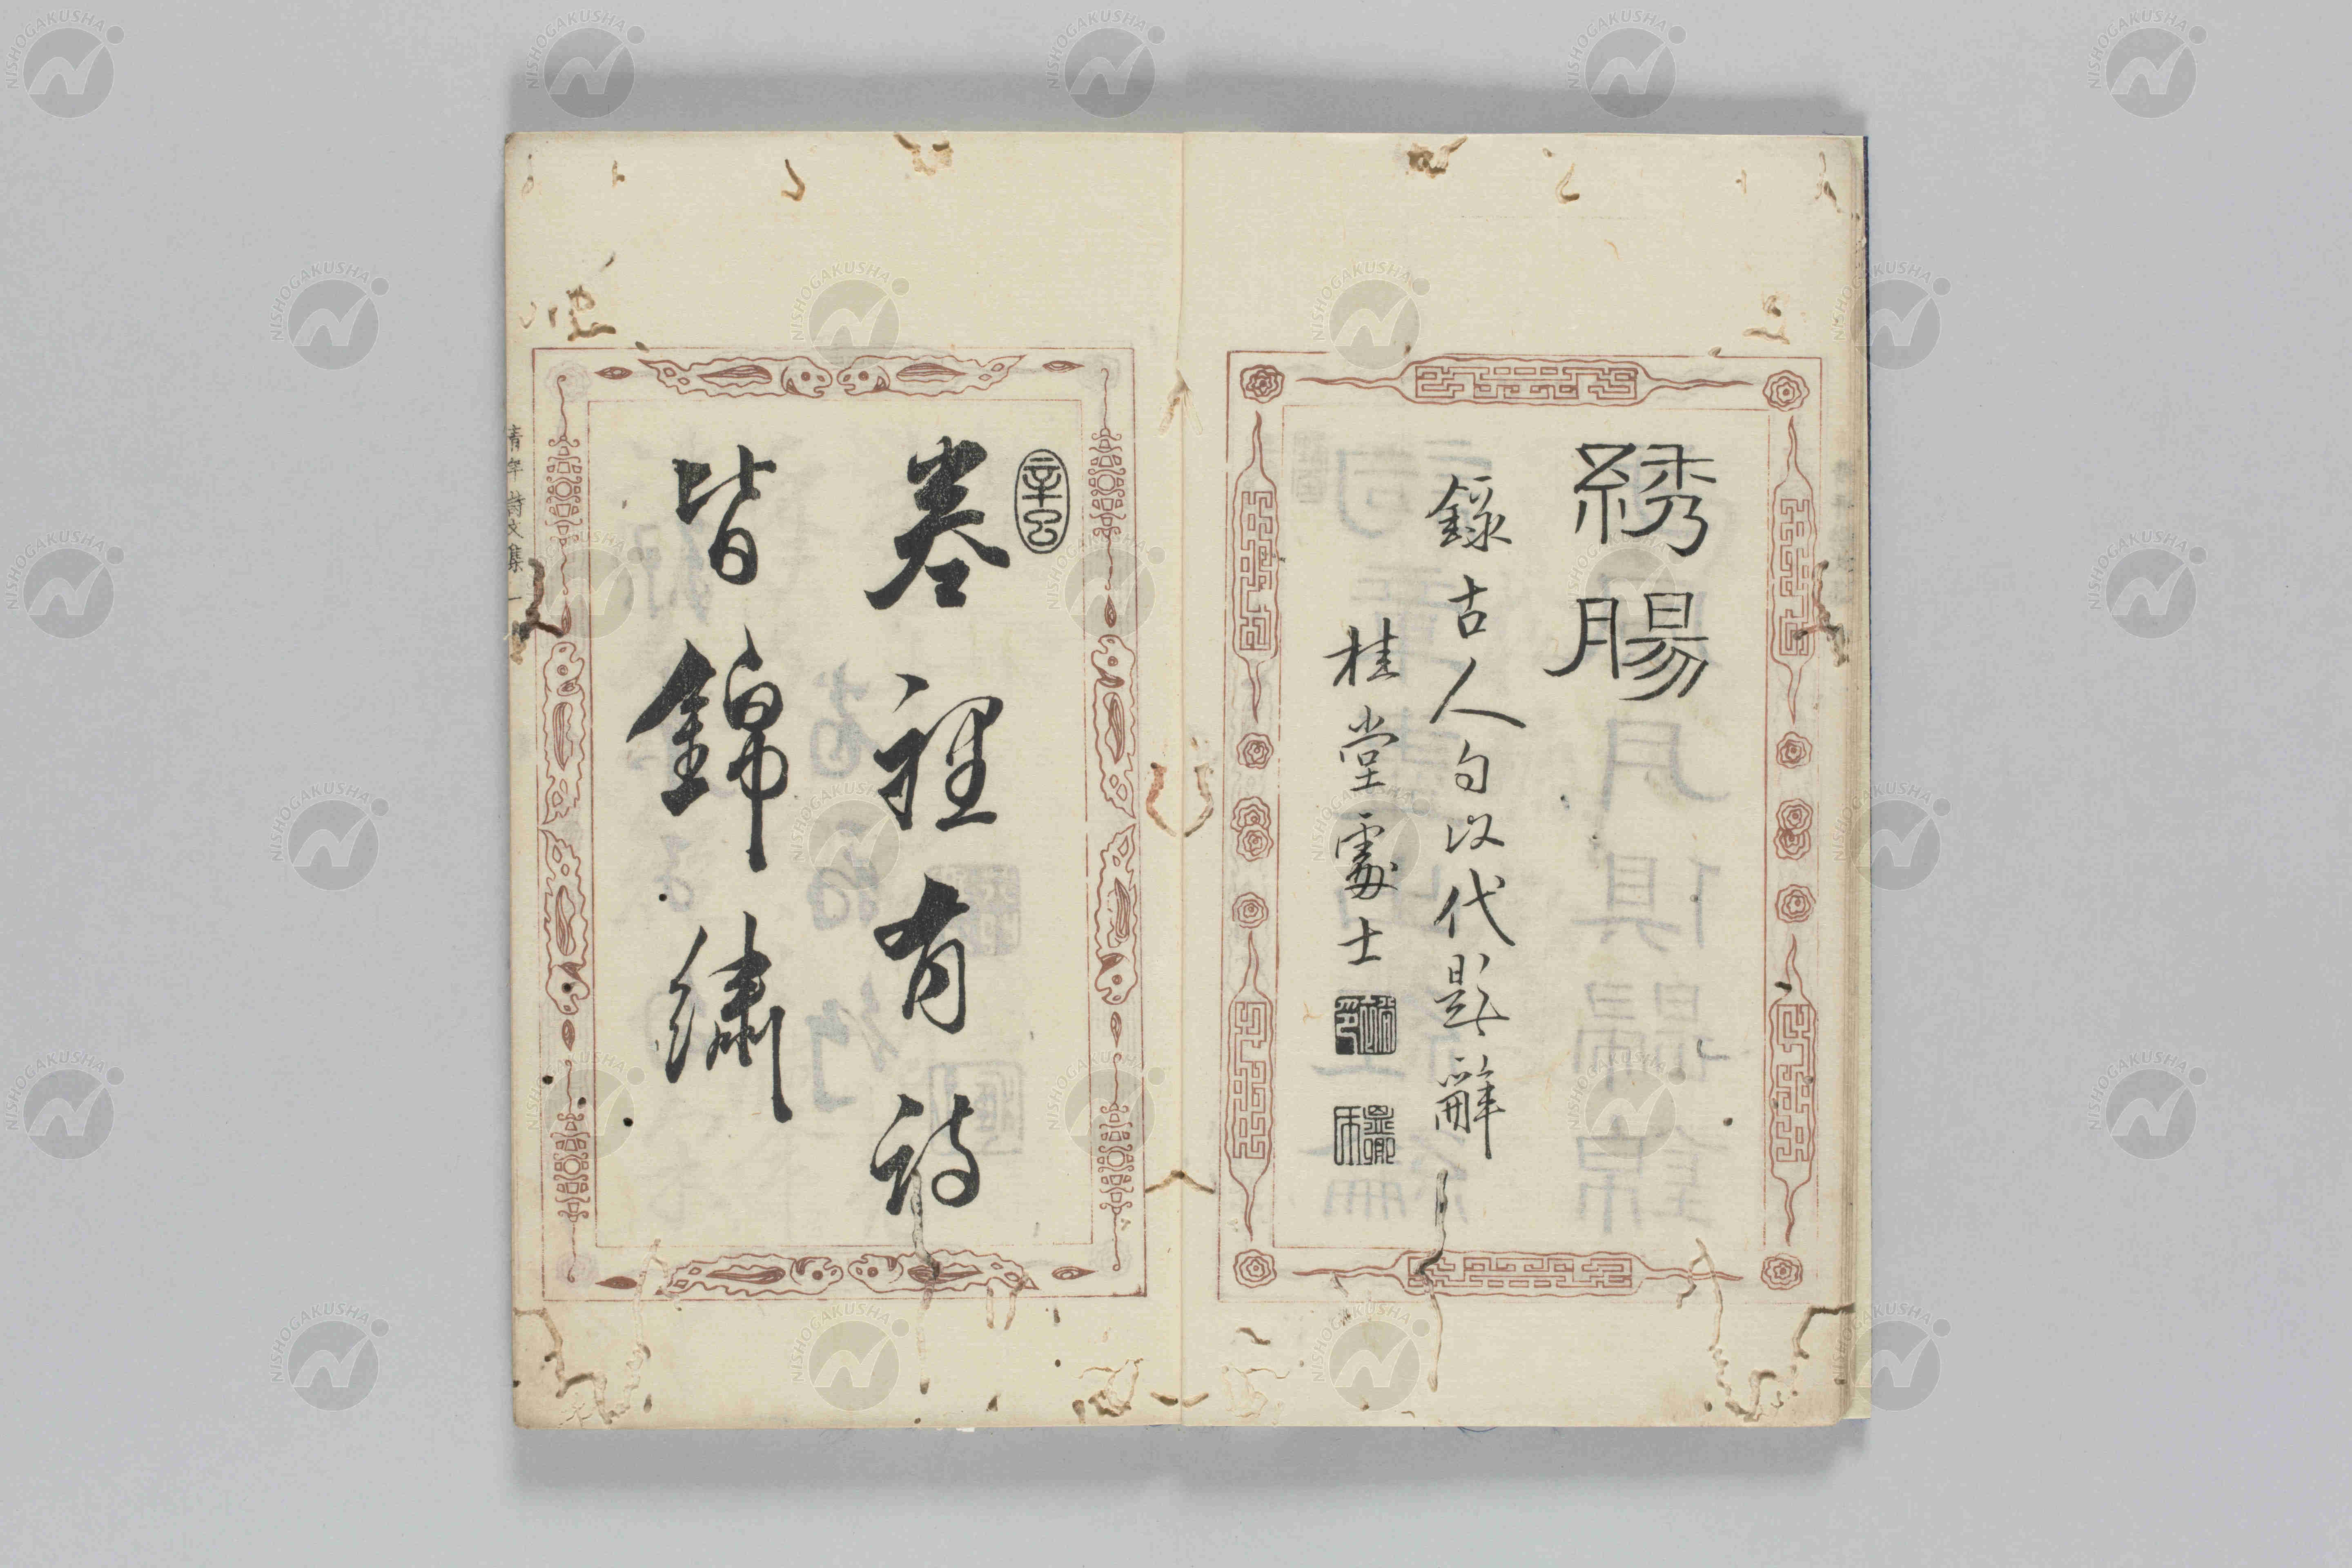 綉腸
錄古人句以代題辭
桂堂處士
卷裡有詩
皆錦繡
青年詩文集 一
NISHOGAKUSHA